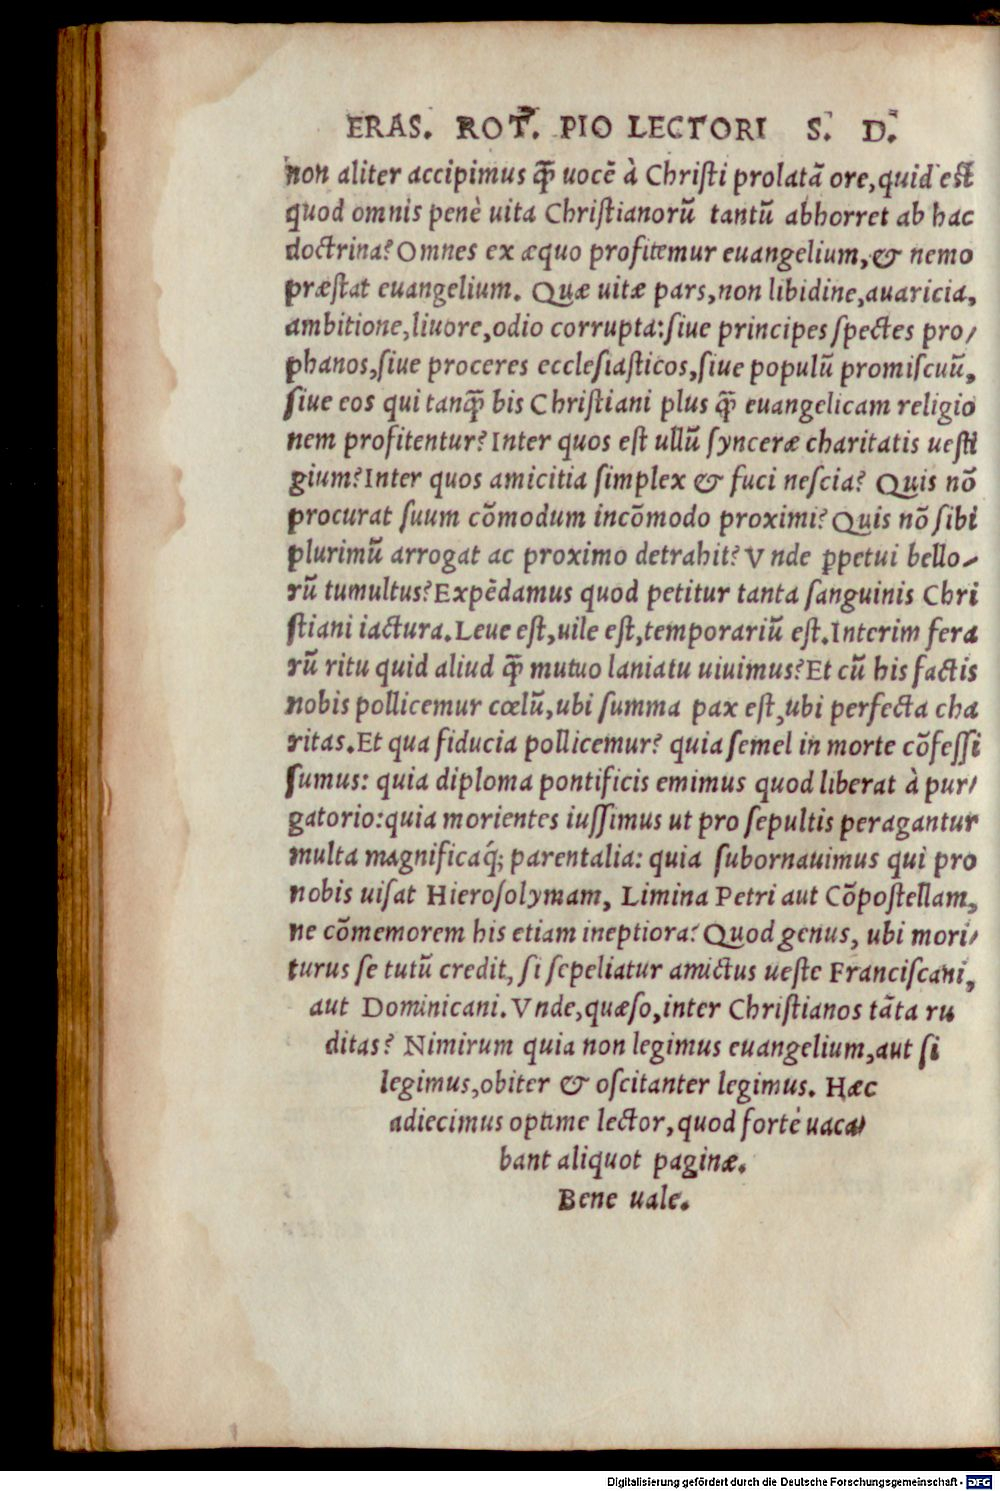 ERAS. ROT. PIO LECTORI S. D.
non aliter accipimus q̃ uocẽ à Chriſti prolatã ore, quid eſt
quod omnis penè uita Chriſtianorũ tantũ abhorret ab hac
doctrina? Omnes ex æquo profitemur euangelium, & nemo
præſtat euangelium. Quæ uitæ pars, non libidine, auaricia,
ambitione, liuore, odio corrupta: ſiue principes ſpectes pro/
phanos, ſiue proceres eccleſiaſticos, ſiue populũ promiſcuũ,
ſiue eos qui tanq̃ bis Chriſtiani plus q̃ euangelicam religio
nem profitentur? Inter quos eſt ullũ ſynceræ charitatis ueſti
gium? Inter quos amicitia ſimplex & fuci neſcia? Quis nõ
procurat ſuum cõmodum incõmodo proximi? Quis nõ ſibi
plurimũ arrogat ac proximo detrahit? Vnde ꝑpetui bello/
rũ tumultus? Expẽdamus quod petitur tanta ſanguinis Chri
ſtiani iactura. Leue eſt, uile eſt, temporariũ eſt. Interim fera
rũ ritu quid aliud q̃ mutuo laniatu uiuimus? Et cũ his factis
nobis pollicemur cœlũ, ubi ſumma pax eſt, ubi perfecta cha
ritas. Et qua fiducia pollicemur? quia ſemel in morte cõfeſſi
ſumus: quia diploma pontificis emimus quod liberat à pur/
gatorio: quia morientes iuſſimus ut pro ſepultis peragantur
multa magnificaq́; parentalia: quia ſubornauimus qui pro
nobis uiſat Hieroſolymam, Limina Petri aut Cõpoſtellam,
ne cõmemorem his etiam ineptiora? Quod genus, ubi mori/
turus ſe tutũ credit, ſi ſepeliatur amictus ueſte Franciſcani,
aut Dominicani. Vnde, quæſo, inter Chriſtianos tãta ru
ditas? Nimirum quia non legimus euangelium, aut ſi
legimus, obiter & oſcitanter legimus. Hæc
adiecimus optime lector, quod fortè uaca/
bant aliquot paginæ.
Bene uale.
Digitalisierung gefördert durch die Deutsche Forschungsgemeinschaft - DFG